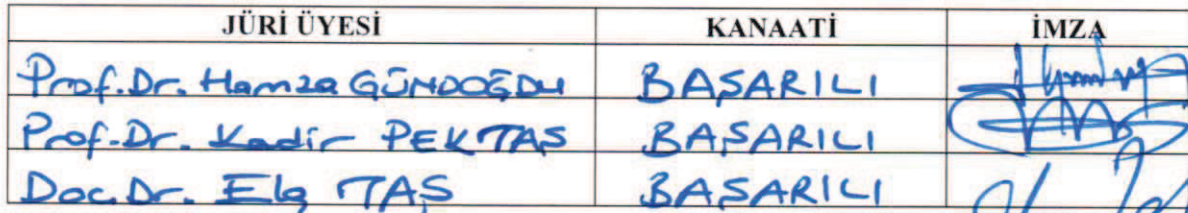 JÜRİ ÜYESİ KANAATİ İMZA
Prof.Dr. Hamza GÜNDOĞDU BAŞARILI
Prof.Dr. Kadir PEKTAŞ BAŞARILI
Doç.Dr. Ela TAŞ BAŞARILI